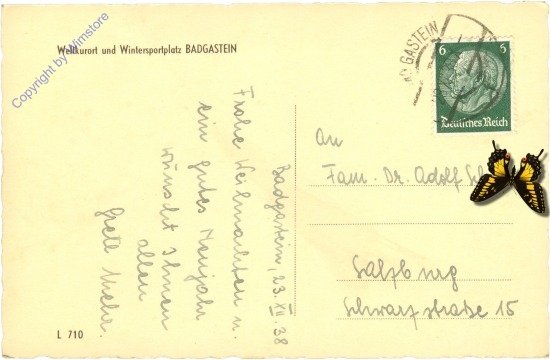 Weltkurort und Wintersportplatz BADGASTEIN
Copyright by Wimstore
BADGASTEIN
6 6
Deutsches Reich
Badgastein, 23. XII 38
Frohe Weihnachten u.
ein gutes Neujahr
wünscht Ihnen
allen
Grete
An
Fam. Dr. Adolf
Salzburg
Schwarzstraße 15
L 710